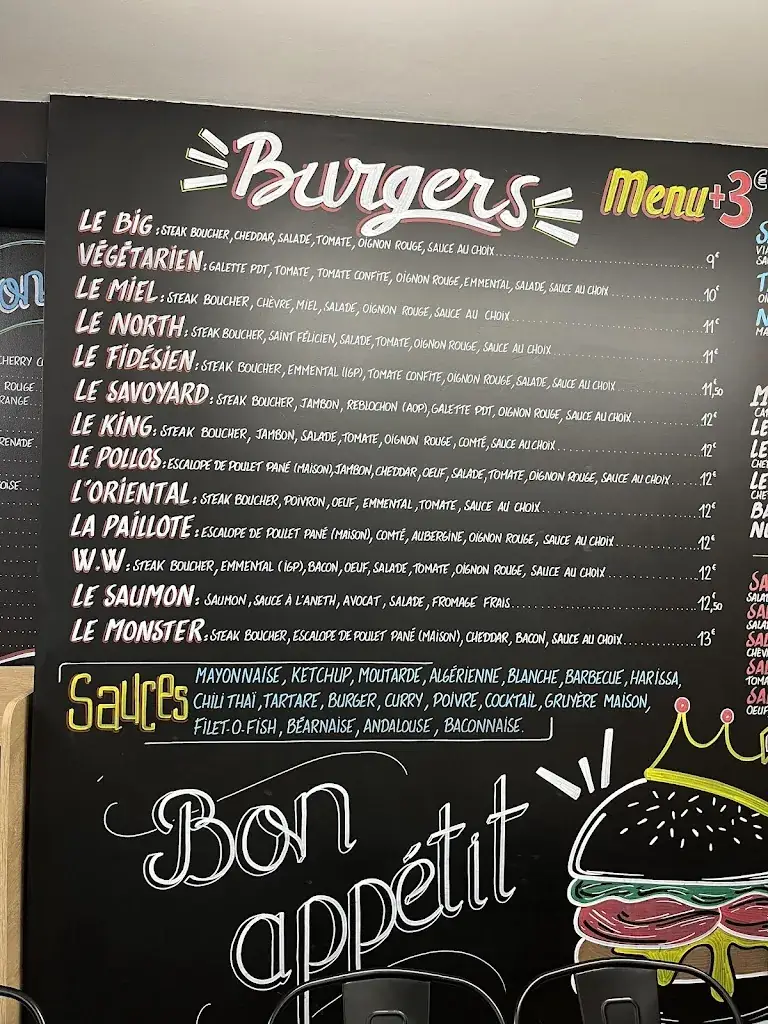 Burgers
Menu +3€
LE BIG : STEAK BOUCHER, CHEDDAR, SALADE, TOMATE, OIGNON ROUGE, SAUCE AU CHOIX 9€
VÉGÉTARIEN : GALETTE PDT, TOMATE, TOMATE CONFITE, OIGNON ROUGE, EMMENTAL, SALADE, SAUCE AU CHOIX 10€
LE MIEL : STEAK BOUCHER, CHÈVRE, MIEL, SALADE, OIGNON ROUGE, SAUCE AU CHOIX 11€
LE NORTH : STEAK BOUCHER, SAINT FÉLICIEN, SALADE, TOMATE, OIGNON ROUGE, SAUCE AU CHOIX 11€
LE FIDÉSIEN : STEAK BOUCHER, EMMENTAL (IGP), TOMATE CONFITE, OIGNON ROUGE, SALADE, SAUCE AU CHOIX 11,50
LE SAVOYARD : STEAK BOUCHER, JAMBON, REBLOCHON (AOP), GALETTE PDT, OIGNON ROUGE, SAUCE AU CHOIX 12€
LE KING : STEAK BOUCHER, JAMBON, SALADE, TOMATE, OIGNON ROUGE, COMTÉ, SAUCE AU CHOIX 12€
LE POLLOS : ESCALOPE DE POULET PANÉ (MAISON), JAMBON, CHEDDAR, OEUF, SALADE, TOMATE, OIGNON ROUGE, SAUCE AU CHOIX 12€
L'ORIENTAL : STEAK BOUCHER, POIVRON, OEUF, EMMENTAL, TOMATE, SAUCE AU CHOIX 12€
LA PAILLOTE : ESCALOPE DE POULET PANÉ (MAISON), COMTÉ, AUBERGINE, OIGNON ROUGE, SAUCE AU CHOIX 12€
W.W : STEAK BOUCHER, EMMENTAL (IGP), BACON, OEUF, SALADE, TOMATE, OIGNON ROUGE, SAUCE AU CHOIX 12€
LE SAUMON : SAUMON, SAUCE À L'ANETH, AVOCAT, SALADE, FROMAGE FRAIS 12,50
LE MONSTER : STEAK BOUCHER, ESCALOPE DE POULET PANÉ (MAISON), CHEDDAR, BACON, SAUCE AU CHOIX 13€
Sauces
MAYONNAISE, KETCHUP, MOUTARDE, ALGÉRIENNE, BLANCHE, BARBECUE, HARISSA,
CHILI THAÏ, TARTARE, BURGER, CURRY, POIVRE, COCKTAIL, GRUYÈRE MAISON,
FILET.O.FISH, BÉARNAISE, ANDALOUSE, BACONNAISE.
Bon
appétit